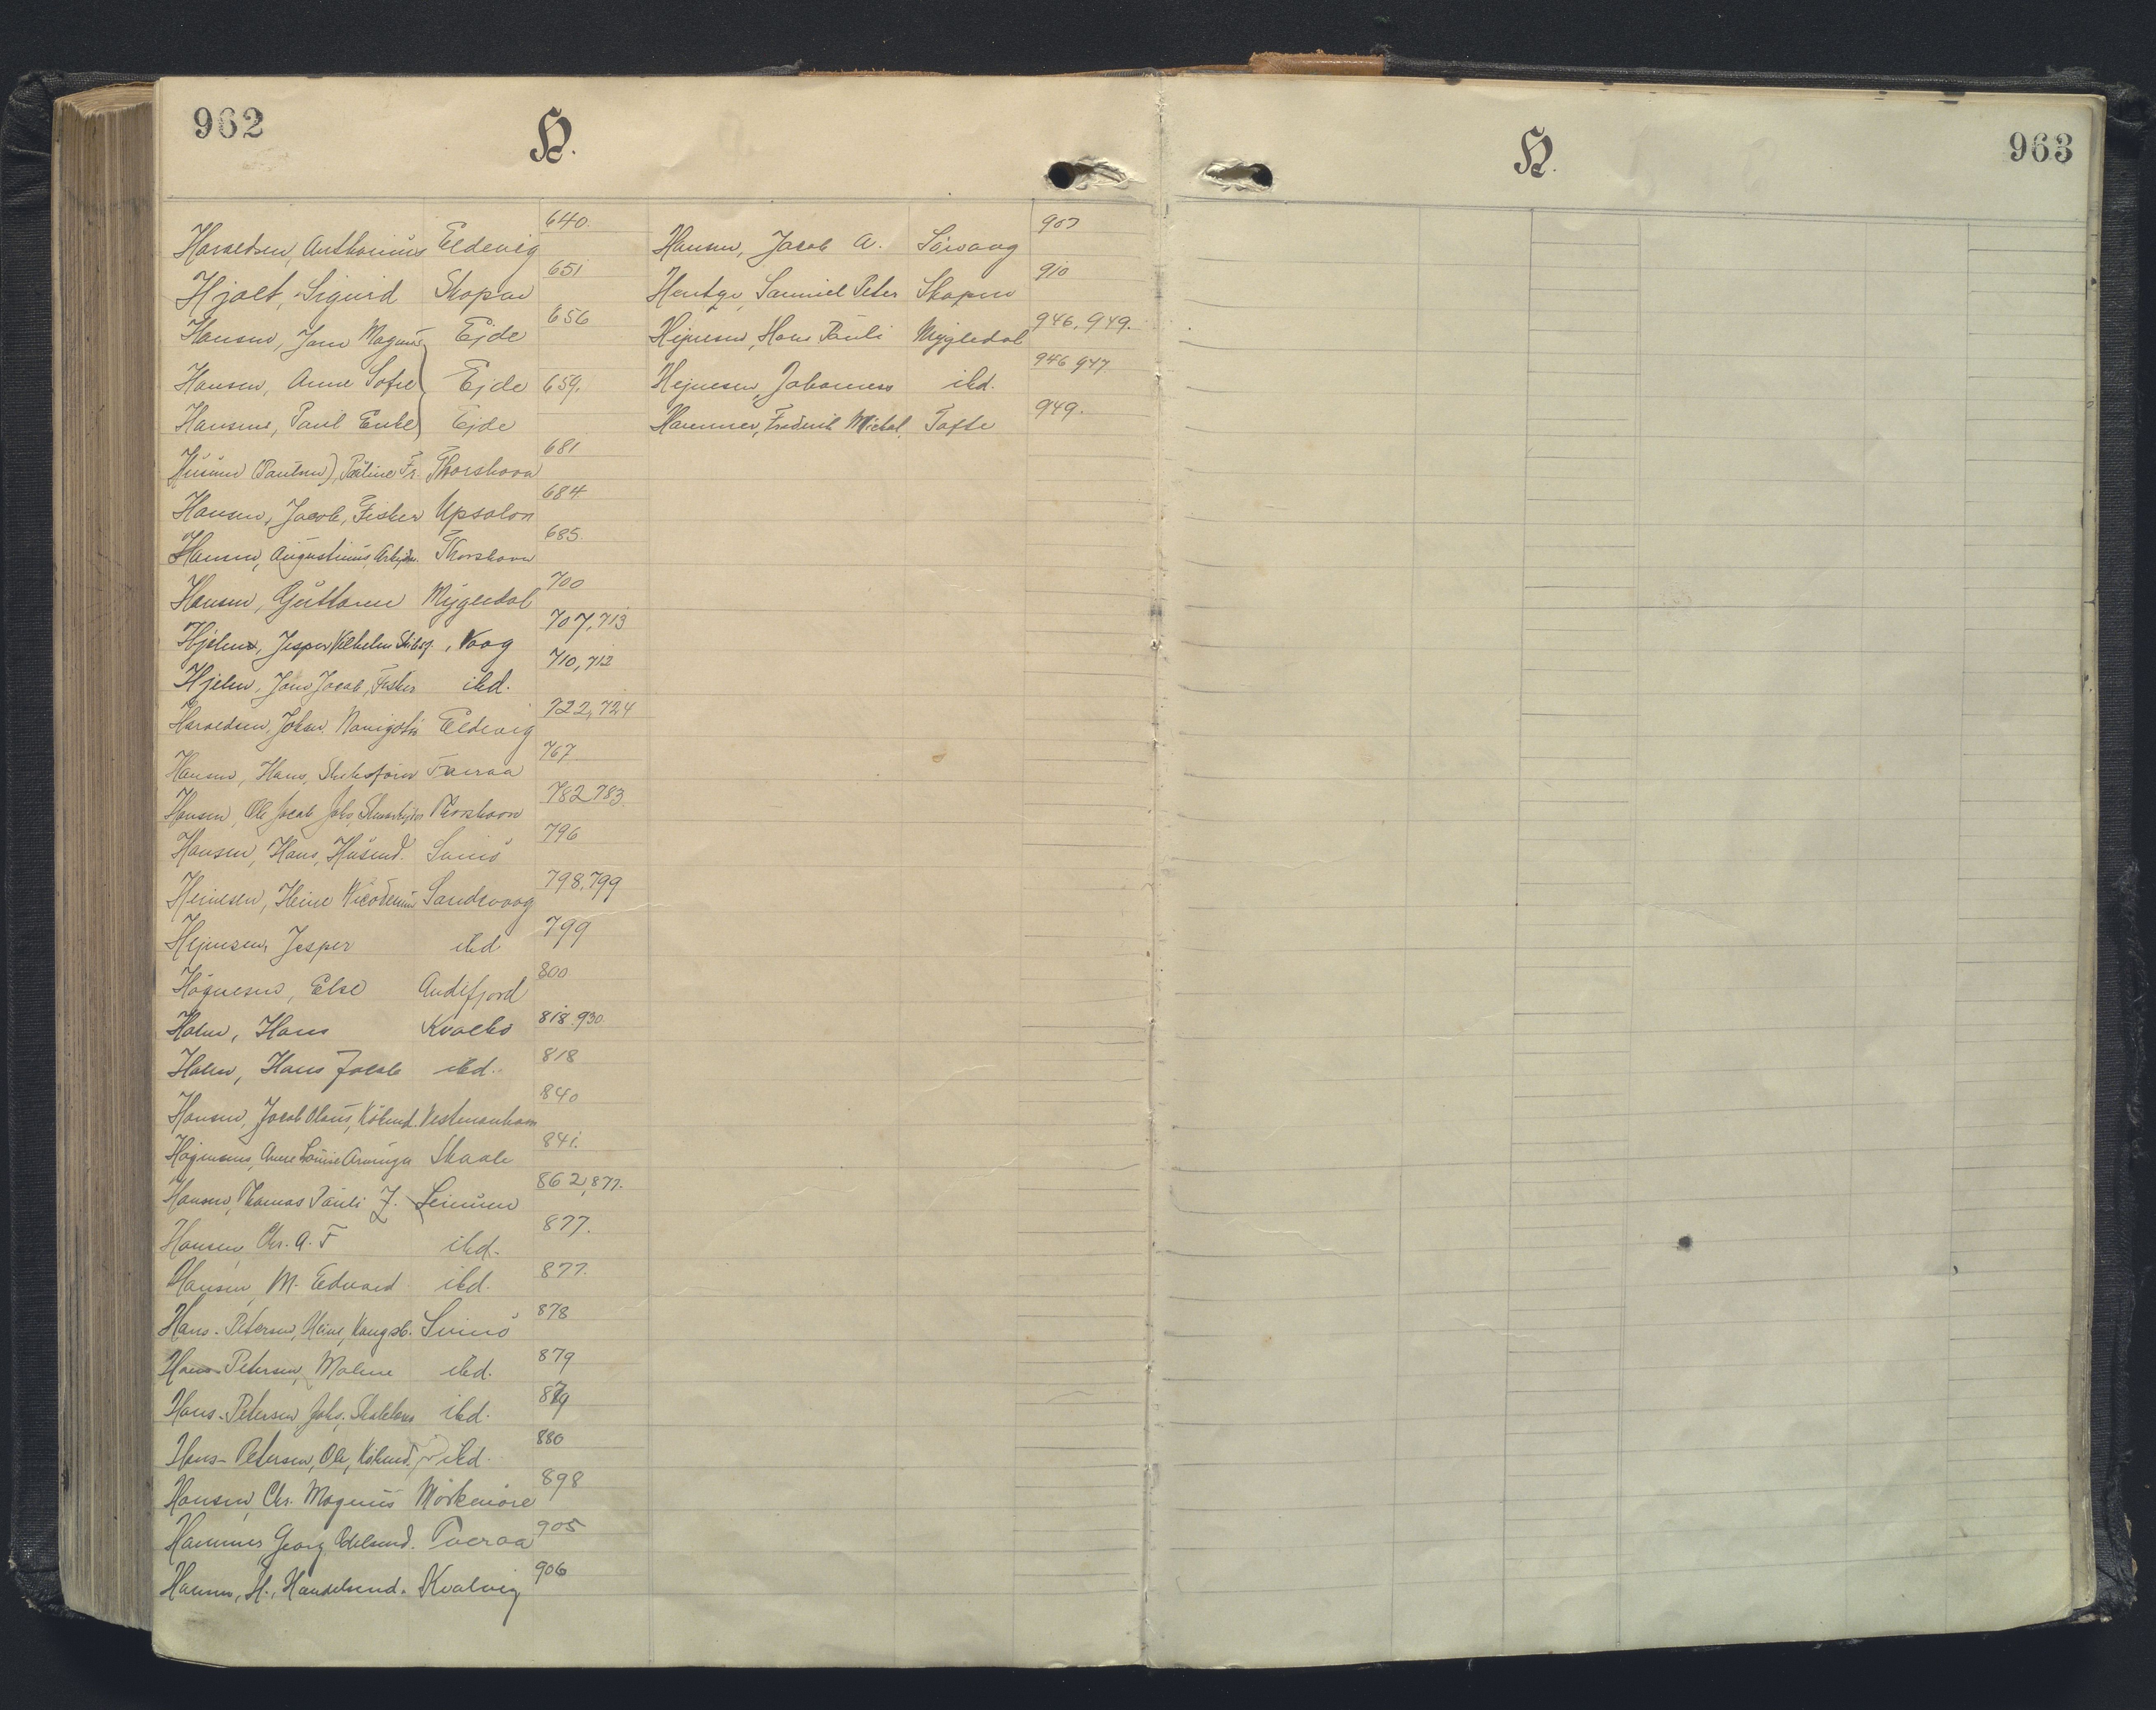 962
H.
Haraldsen, Anthonius Eldevig 640.
Hjalt, Sigurd Skopun 651
Hansen, Jens Magnus Ejde 656
Hansen, Anne Sofie Ejde 659.
Hansen, Paul Enke Ejde
Husum (Poulsen), Pauline Fr. Thorshavn 681
Hansen, Jacob, Fisker Upsalon 684
Hansen, Augustinus, Arbejdsm. Thorshavn 685.
Hansen, Guttorm Mygledal 700
Hjelm, Jesper Vilhelm Skibsf., Vaag 707, 713
Hjelm, Jens Jacob, Fisker ibd. 710, 712
Haraldsen, Johan Navigatør Eldevig 722, 724
Hansen, Hans, Skibsfører Tveraa 767
Hansen, Ole Jacob Johs, Thorshavn 782 783
Hansen, Hans, Husmd. Svinö 796
Heinesen, Heine Nicodemus Sandevaag 798, 799
Hejnesen, Jesper ibd 799
Högnesen, Else Andefjord 800
Holm, Hans Kvalbö 818. 930
Holm, Hans Jacob ibd. 818
Hansen, Jacob Olaus, Köbmd. Vestmanhavn 840
Högnesen, Anne Louise Skaale 841.
Hansen, Thomas Pauli J. Leinum 862, 877.
Hansen, Chr. A. F ibd. 877.
Hansen, M. Edvard ibd. 877.
Hans-Petersen, Heine, Kongsb. Svinö 878
Hans-Petersen, Maline ibd. 879
Hans-Petersen, Johs. ibd. 879
Hans-Petersen, Ole, Köbmd. ibd. 880
Hansen, Chr. Magnus Morkenöre 898
Hammer, Georg, Odelsmd. Tveraa 905
Hansen, H., Handelsmd. Kvalvig 906
Hansen, Jacob A. Sörvaag 907
Hentze, Samuel Peter Skopun 910
Hejnesen, Hans Pauli Mygledal 946, 949.
Hejnesen, Johannes ibd. 946 947
Hammer, Frederik Michal, Tofte 949.
H.
963